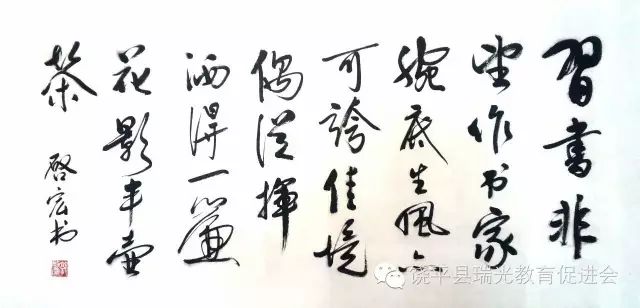 習書非
望作书家
腕底生風亦
可誇佳境
偶從揮
洒得一簾
花影半壺
茶
啓宏书
饶平县瑞光教育促进会